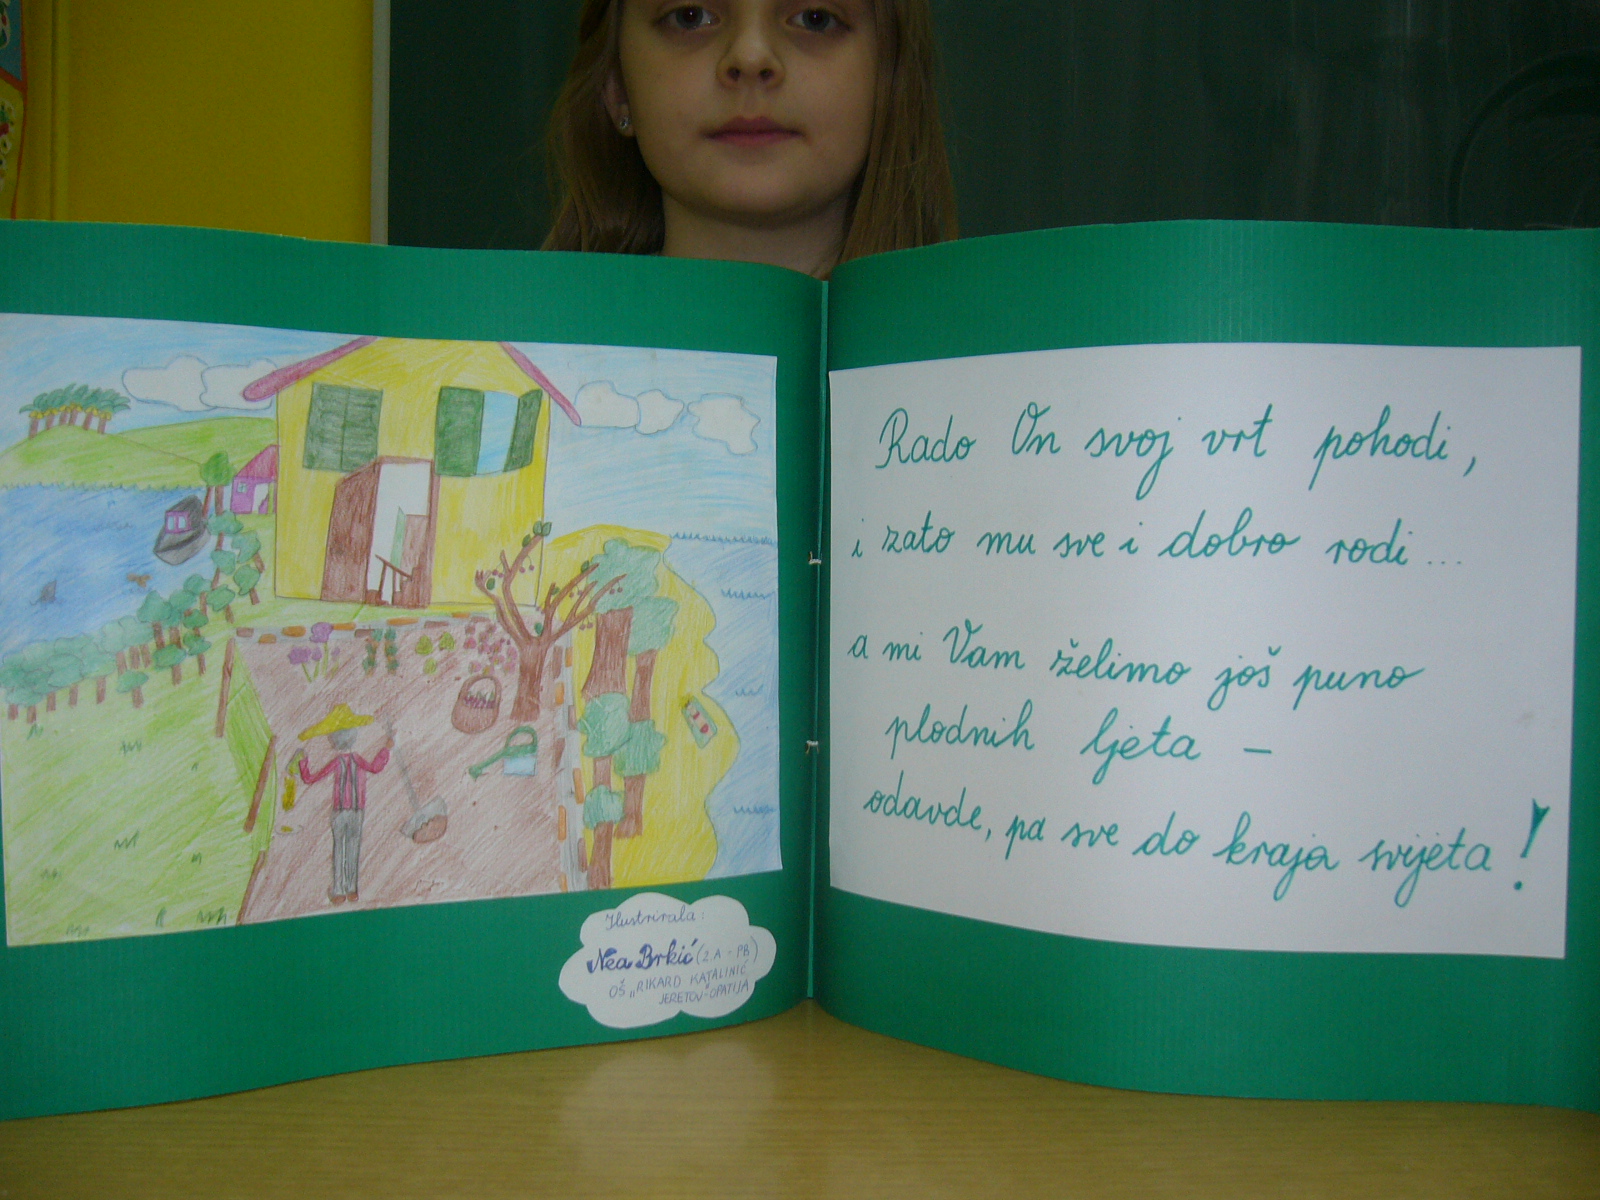 Ilustrirala:
Nea Brkić (2.A - PB)
OŠ „RIKARD KATALINIĆ
JERETOV" OPATIJA
Rado On svoj vrt pohodi,
i zato mu sve i dobro rodi...
a mi Vam želimo još puno
plodnih ljeta -
odavde, pa sve do kraja svijeta!